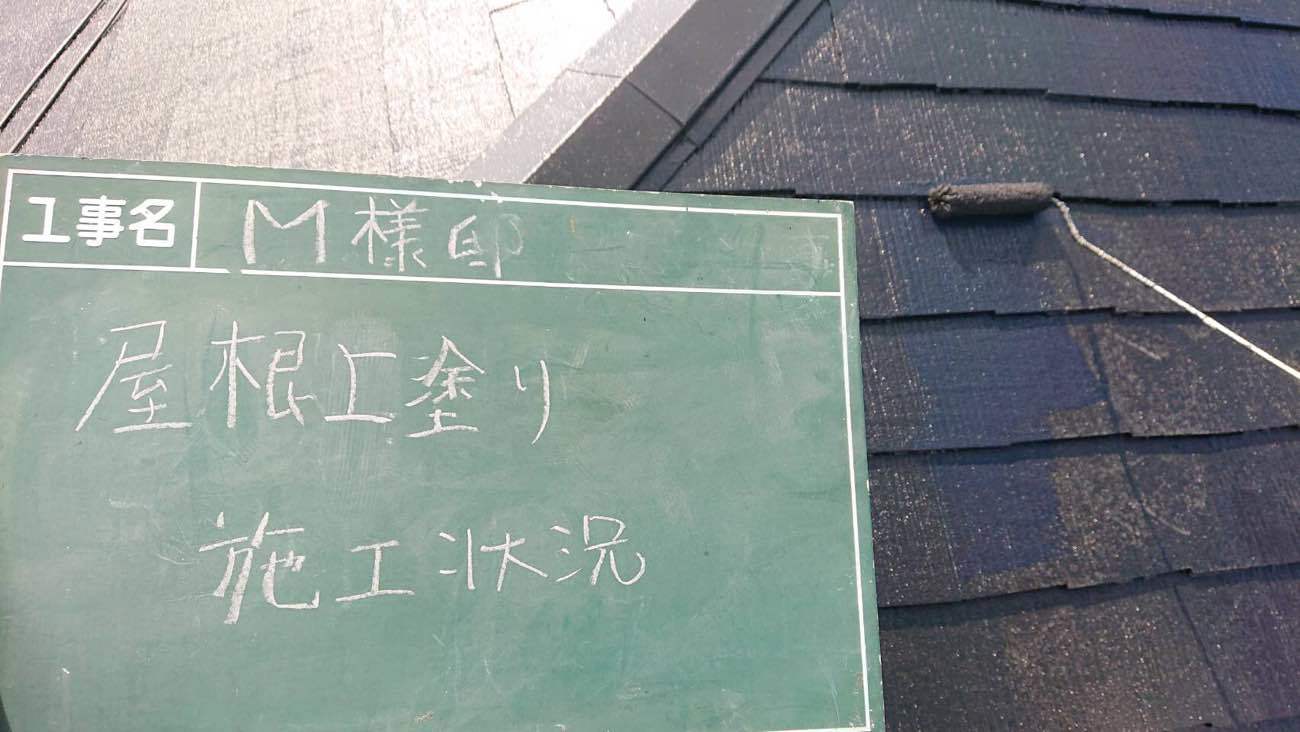 工事名 M様邸
屋根上塗り
施工状況